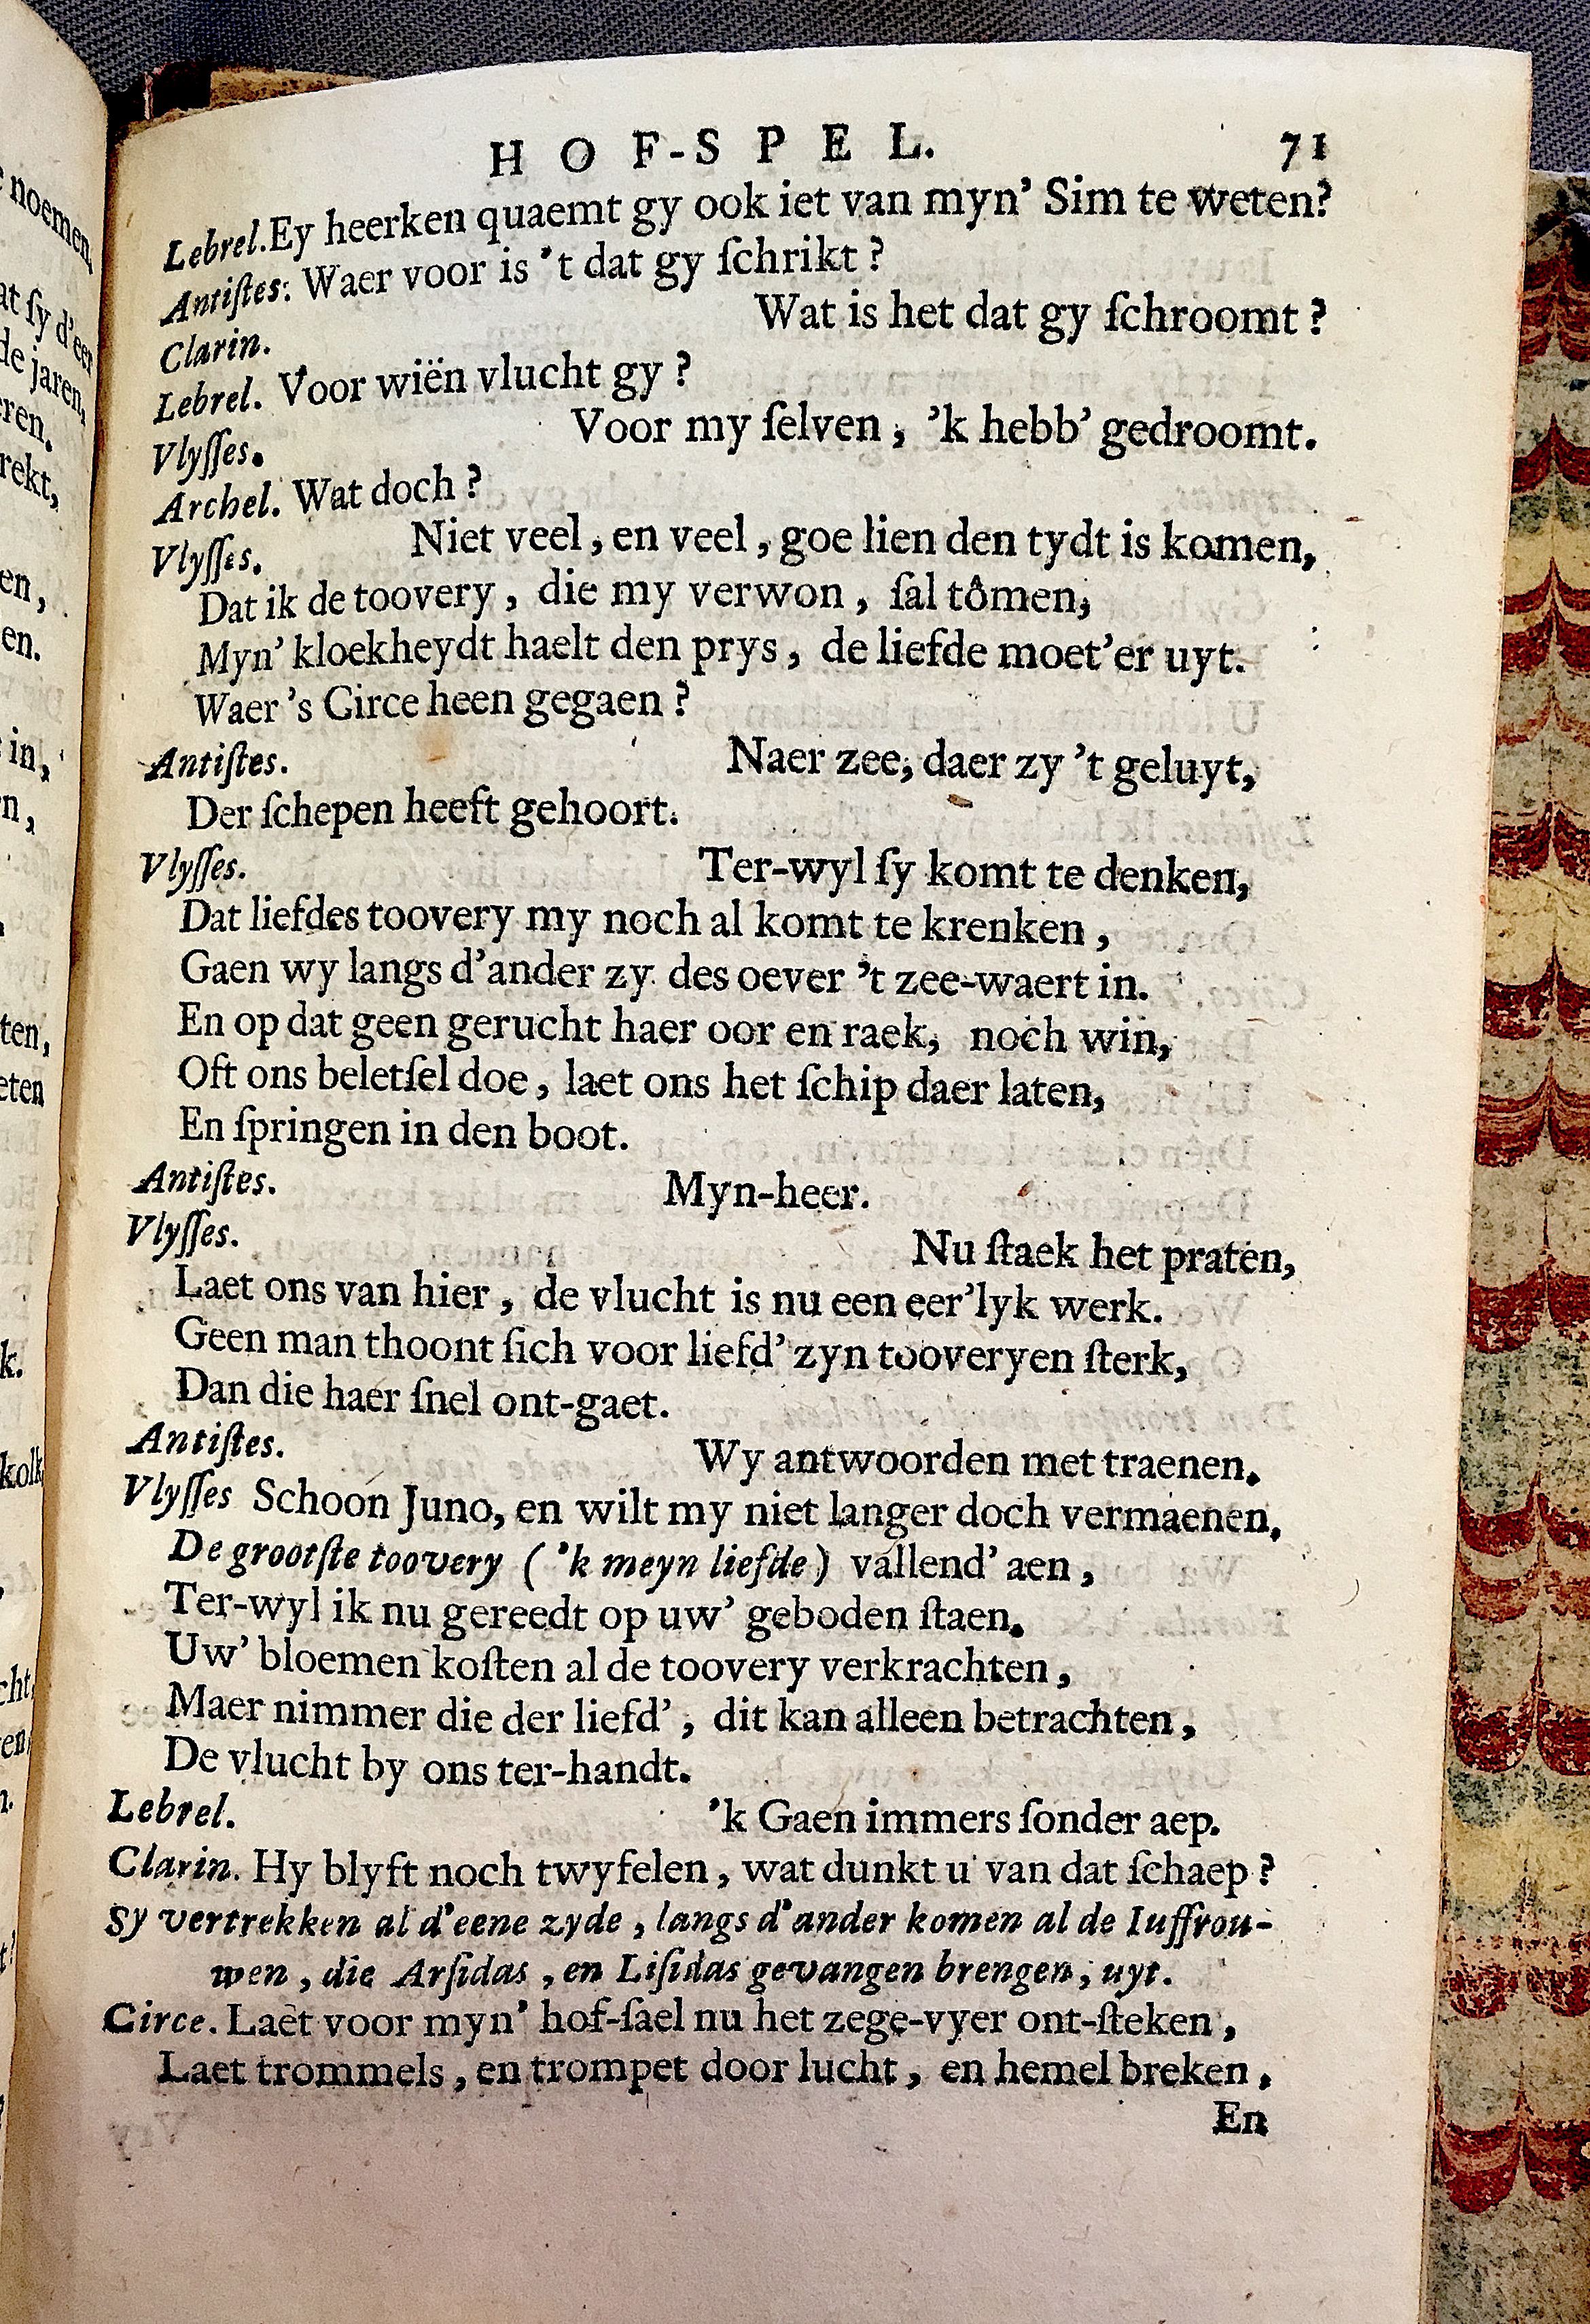 noemen.
at ſy d'eer
de jaren,
eren.
rekt,
en,
en.
in,
n,
ten,
eten
k.
kolk
cht,
en,
HOF-SPEL. 71
Lebrel. Ey heerken quaemt gy ook iet van myn' Sim te weten?
Antiſtes: Waer voor is 't dat gy ſchrikt?
Clarin. Wat is het dat gy ſchroomt?
Lebrel. Voor wiën vlucht gy?
Vlyſſes. Voor my ſelven, 'k hebb' gedroomt.
Archel. Wat doch?
Vlyſſes. Niet veel, en veel, goe lien den tydt is komen,
Dat ik de toovery, die my verwon, ſal tômen,
Myn' kloekheydt haelt den prys, de liefde moet'er uyt.
Waer 's Circe heen gegaen?
Antiſtes. Naer zee, daer zy 't geluyt,
Der ſchepen heeft gehoort.
Vlyſſes. Ter-wyl ſy komt te denken,
Dat liefdes toovery my noch al komt te krenken,
Gaen wy langs d'ander zy des oever 't zee-waert in.
En op dat geen gerucht haer oor en raek, noch win,
Oft ons beletſel doe, laet ons het ſchip daer laten,
En ſpringen in den boot.
Antiſtes. Myn-heer.
Vlyſſes. Nu ſtaek het praten,
Laet ons van hier, de vlucht is nu een eer'lyk werk.
Geen man thoont ſich voor liefd' zyn tooveryen ſterk,
Dan die haer ſnel ont-gaet.
Antiſtes. Wy antwoorden met traenen.
Vlyſſes Schoon Juno, en wilt my niet langer doch vermaenen,
De grootſte toovery ('k meyn liefde) vallend' aen,
Ter-wyl ik nu gereedt op uw' geboden ſtaen.
Uw' bloemen koſten al de toovery verkrachten,
Maer nimmer die der liefd', dit kan alleen betrachten,
De vlucht by ons ter-handt.
Lebrel. 'k Gaen immers ſonder aep.
Clarin. Hy blyft noch twyfelen, wat dunkt u van dat ſchaep?
Sy vertrekken al d'eene zyde, langs d'ander komen al de Iuffrou-
wen, die Arſidas, en Liſidas gevangen brengen, uyt.
Circe. Laet voor myn' hof-ſael nu het zege-vyer ont-ſteken,
Laet trommels, en trompet door lucht, en hemel breken,
En